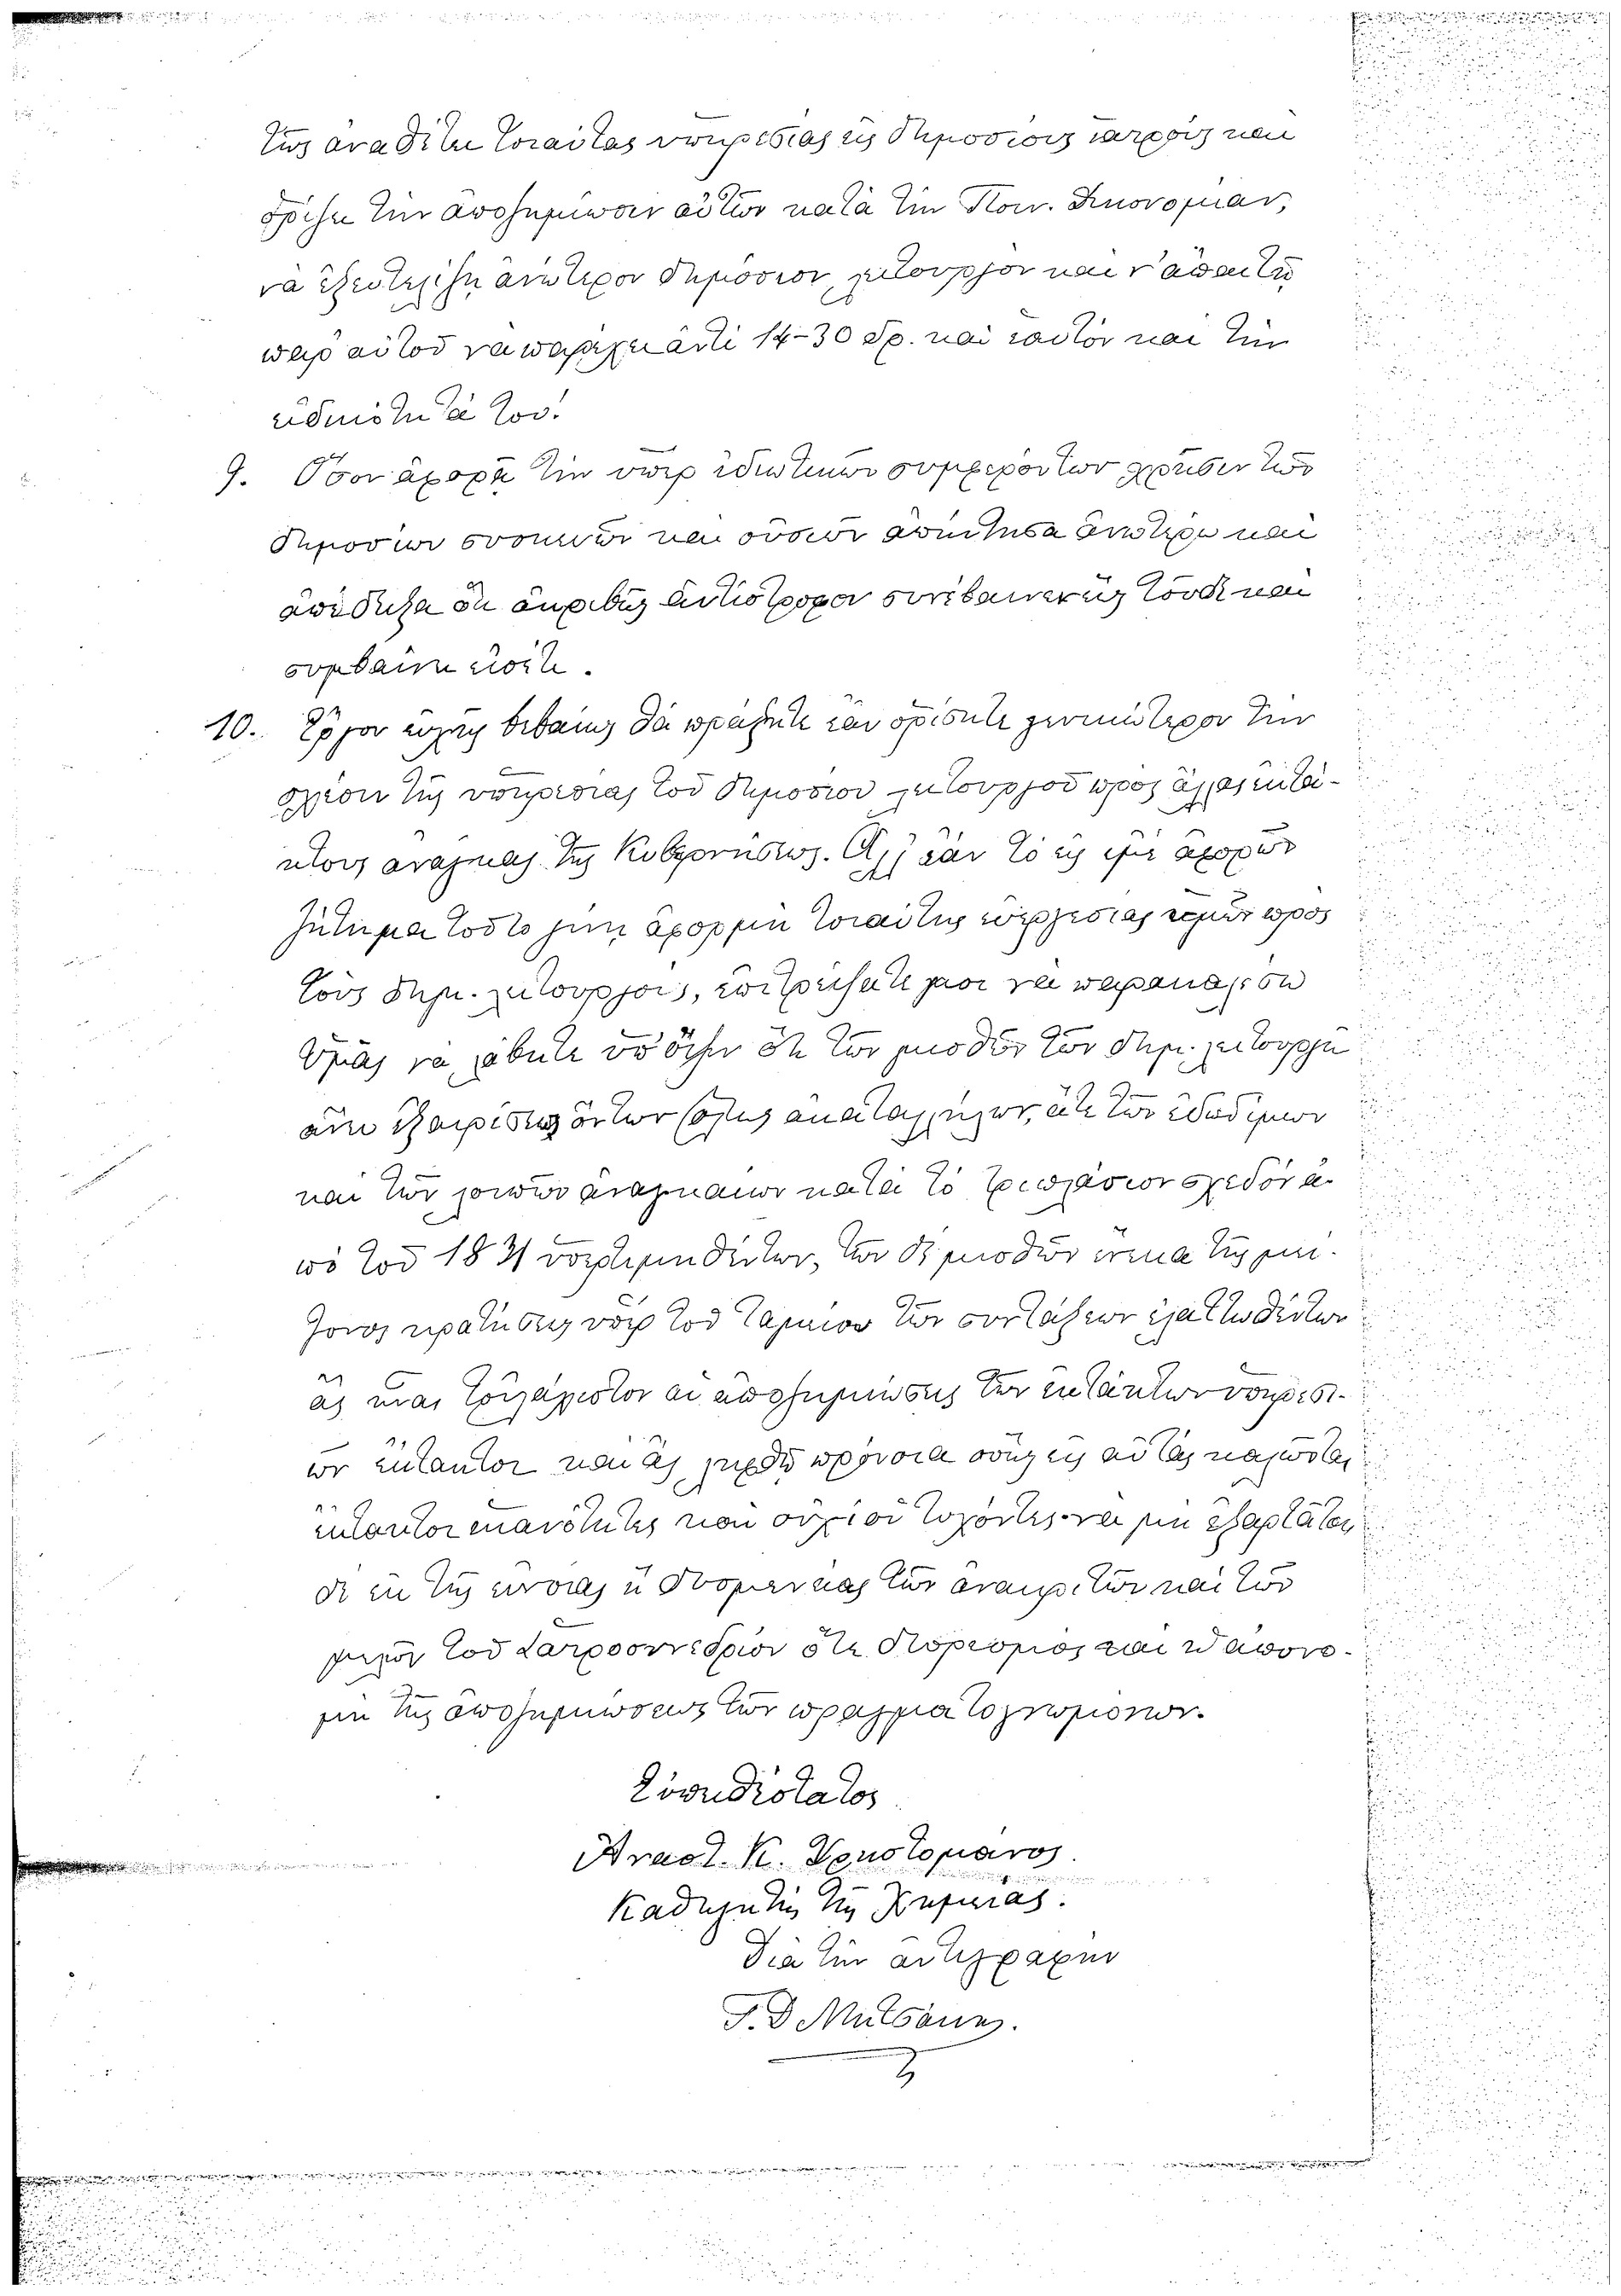 τως ἀναθέτει τοιαύτας ὑπηρεσίας εἰς δημοσίους ἰατροὺς καὶ
ὁρίζει τὴν ἀποζημίωσιν αὐτῶν κατὰ τὴν Ποιν. Δικονομίαν,
νὰ ἐξευτελίζῃ ἀνώτερον δημόσιον λειτουργὸν καὶ ν' ἀπαιτῇ
παρ' αὐτοῦ νὰ παρέχῃ ἀντὶ 14-30 δρ. καὶ ἑαυτὸν καὶ τὴν
εἰδικότητά του!
9. Ὅσον ἀφορᾷ τὴν ὑπὲρ ἰδιωτικῶν συμφερόντων χρῆσιν τῶν
δημοσίων συσκευῶν καὶ οὐσιῶν ἀπήντησα ἀνωτέρω καὶ
ἀπέδειξα ὅτι ἀκριβῶς ἀντίστροφον συνέβαινεν ὡς τοῦδε καὶ
συμβαίνει εἰσέτι.
10. Ἔργον εὐχῆς βεβαίως θὰ πράξητε ἐὰν ὁρίσητε γενικώτερον τὴν
σχέσιν τῆς ὑπηρεσίας τοῦ δημοσίου λειτουργοῦ πρὸς ἄλλας ἐκτά-
κτους ἀνάγκας τῆς Κυβερνήσεως. Ἀλλ' ἐὰν τὸ εἰς ἐμὲ ἀφορῶν
ζήτημα τοῦτο γίνῃ ἀφορμὴ τοιαύτης εὐεργεσίας ὑμῶν πρὸς
τοὺς δημ. λειτουργούς, ἐπιτρέψατέ μοι νὰ παρακαλέσω
Ὑμᾶς νὰ λάβητε ὑπ' ὄψιν ὅτι τῶν μισθῶν τῶν δημ. λειτουργῶν
ἄνευ ἐξαιρέσεως ὄντων ὅλως ἀκαταλλήλων, ἅτε τῶν ἐδωδίμων
καὶ τῶν λοιπῶν ἀναγκαίων κατὰ τὸ τριπλάσιον σχεδὸν ἀ-
πὸ τοῦ 1831 ὑπερτιμηθέντων, τῶν δὲ μισθῶν ἕνεκα τῆς μεί-
ζονος κρατήσεως ὑπὲρ τοῦ ταμείου τῶν συντάξεων ἐλαττωθέντων
ἂς ὦσι τοὐλάχιστον αἱ ἀποζημιώσεις τῶν ἐκτάκτων ὑπηρεσι-
ῶν ἔκτακτοι καὶ ἂς ληφθῇ πρόνοια ὅπως εἰς αὐτὰς καλῶνται
ἔκτακτοι ἱκανότητες καὶ οὐχὶ οἱ τυχόντες· νὰ μὴ ἐξαρτᾶται
δὲ ἐκ τῆς εὐνοίας ἢ δυσμενείας τῶν ἀνακριτῶν καὶ τῶν
μελῶν τοῦ Ἰατροσυνεδρίου ὅ τε διορισμὸς καὶ ἡ ἀπονο-
μὴ τῆς ἀποζημιώσεως τῶν πραγματογνωμόνων.
Εὐπειθέστατος
Ἀναστ. Κ. Χρηστομάνος.
Καθηγητὴς τῆς Χημείας.
διὰ τὴν ἀντιγραφὴν
Γ. Δ Μητσάκης.